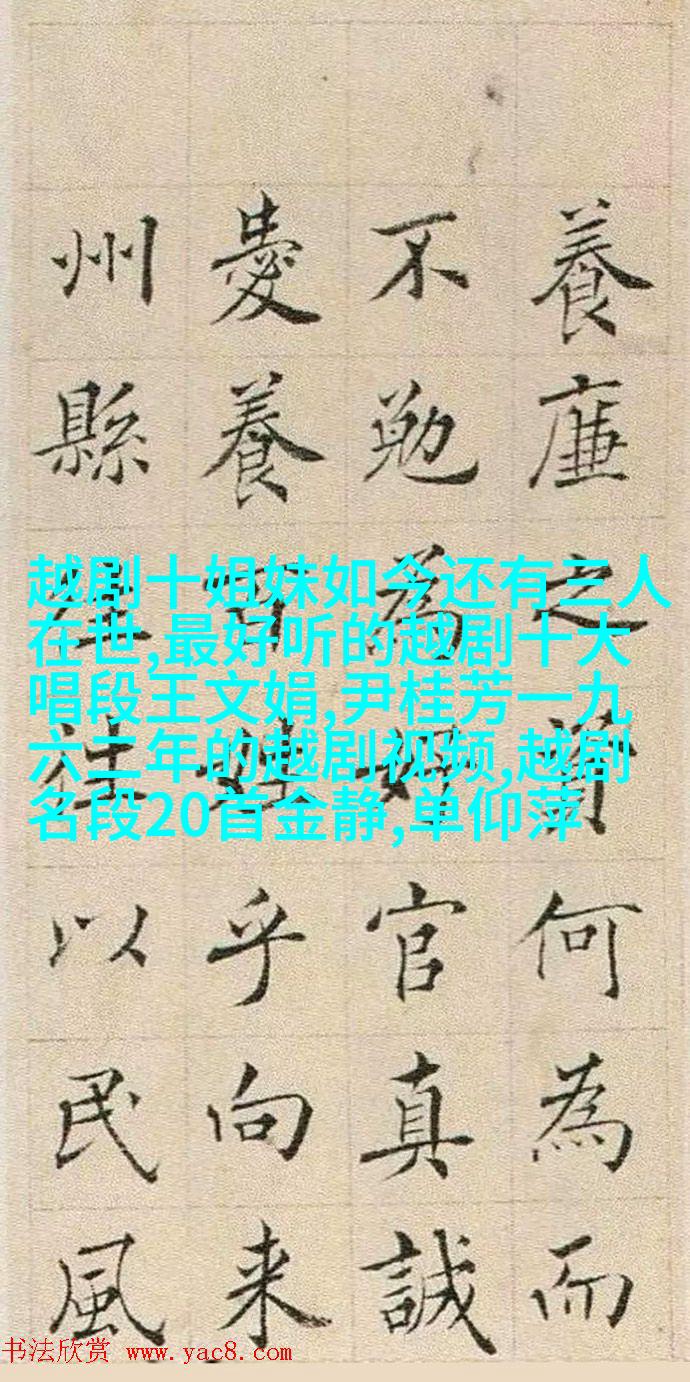 養廉之何為而
不勉為好官真誠
愛養百姓乎向来
州縣往往以民風
越剧十姐妹如今还有三人
在世,最好听的越剧十大
唱段王文娟,尹桂芳一九
六二年的越剧视频,越剧
名段20首金静,单仰萍
书法欣赏 www.yac8.com